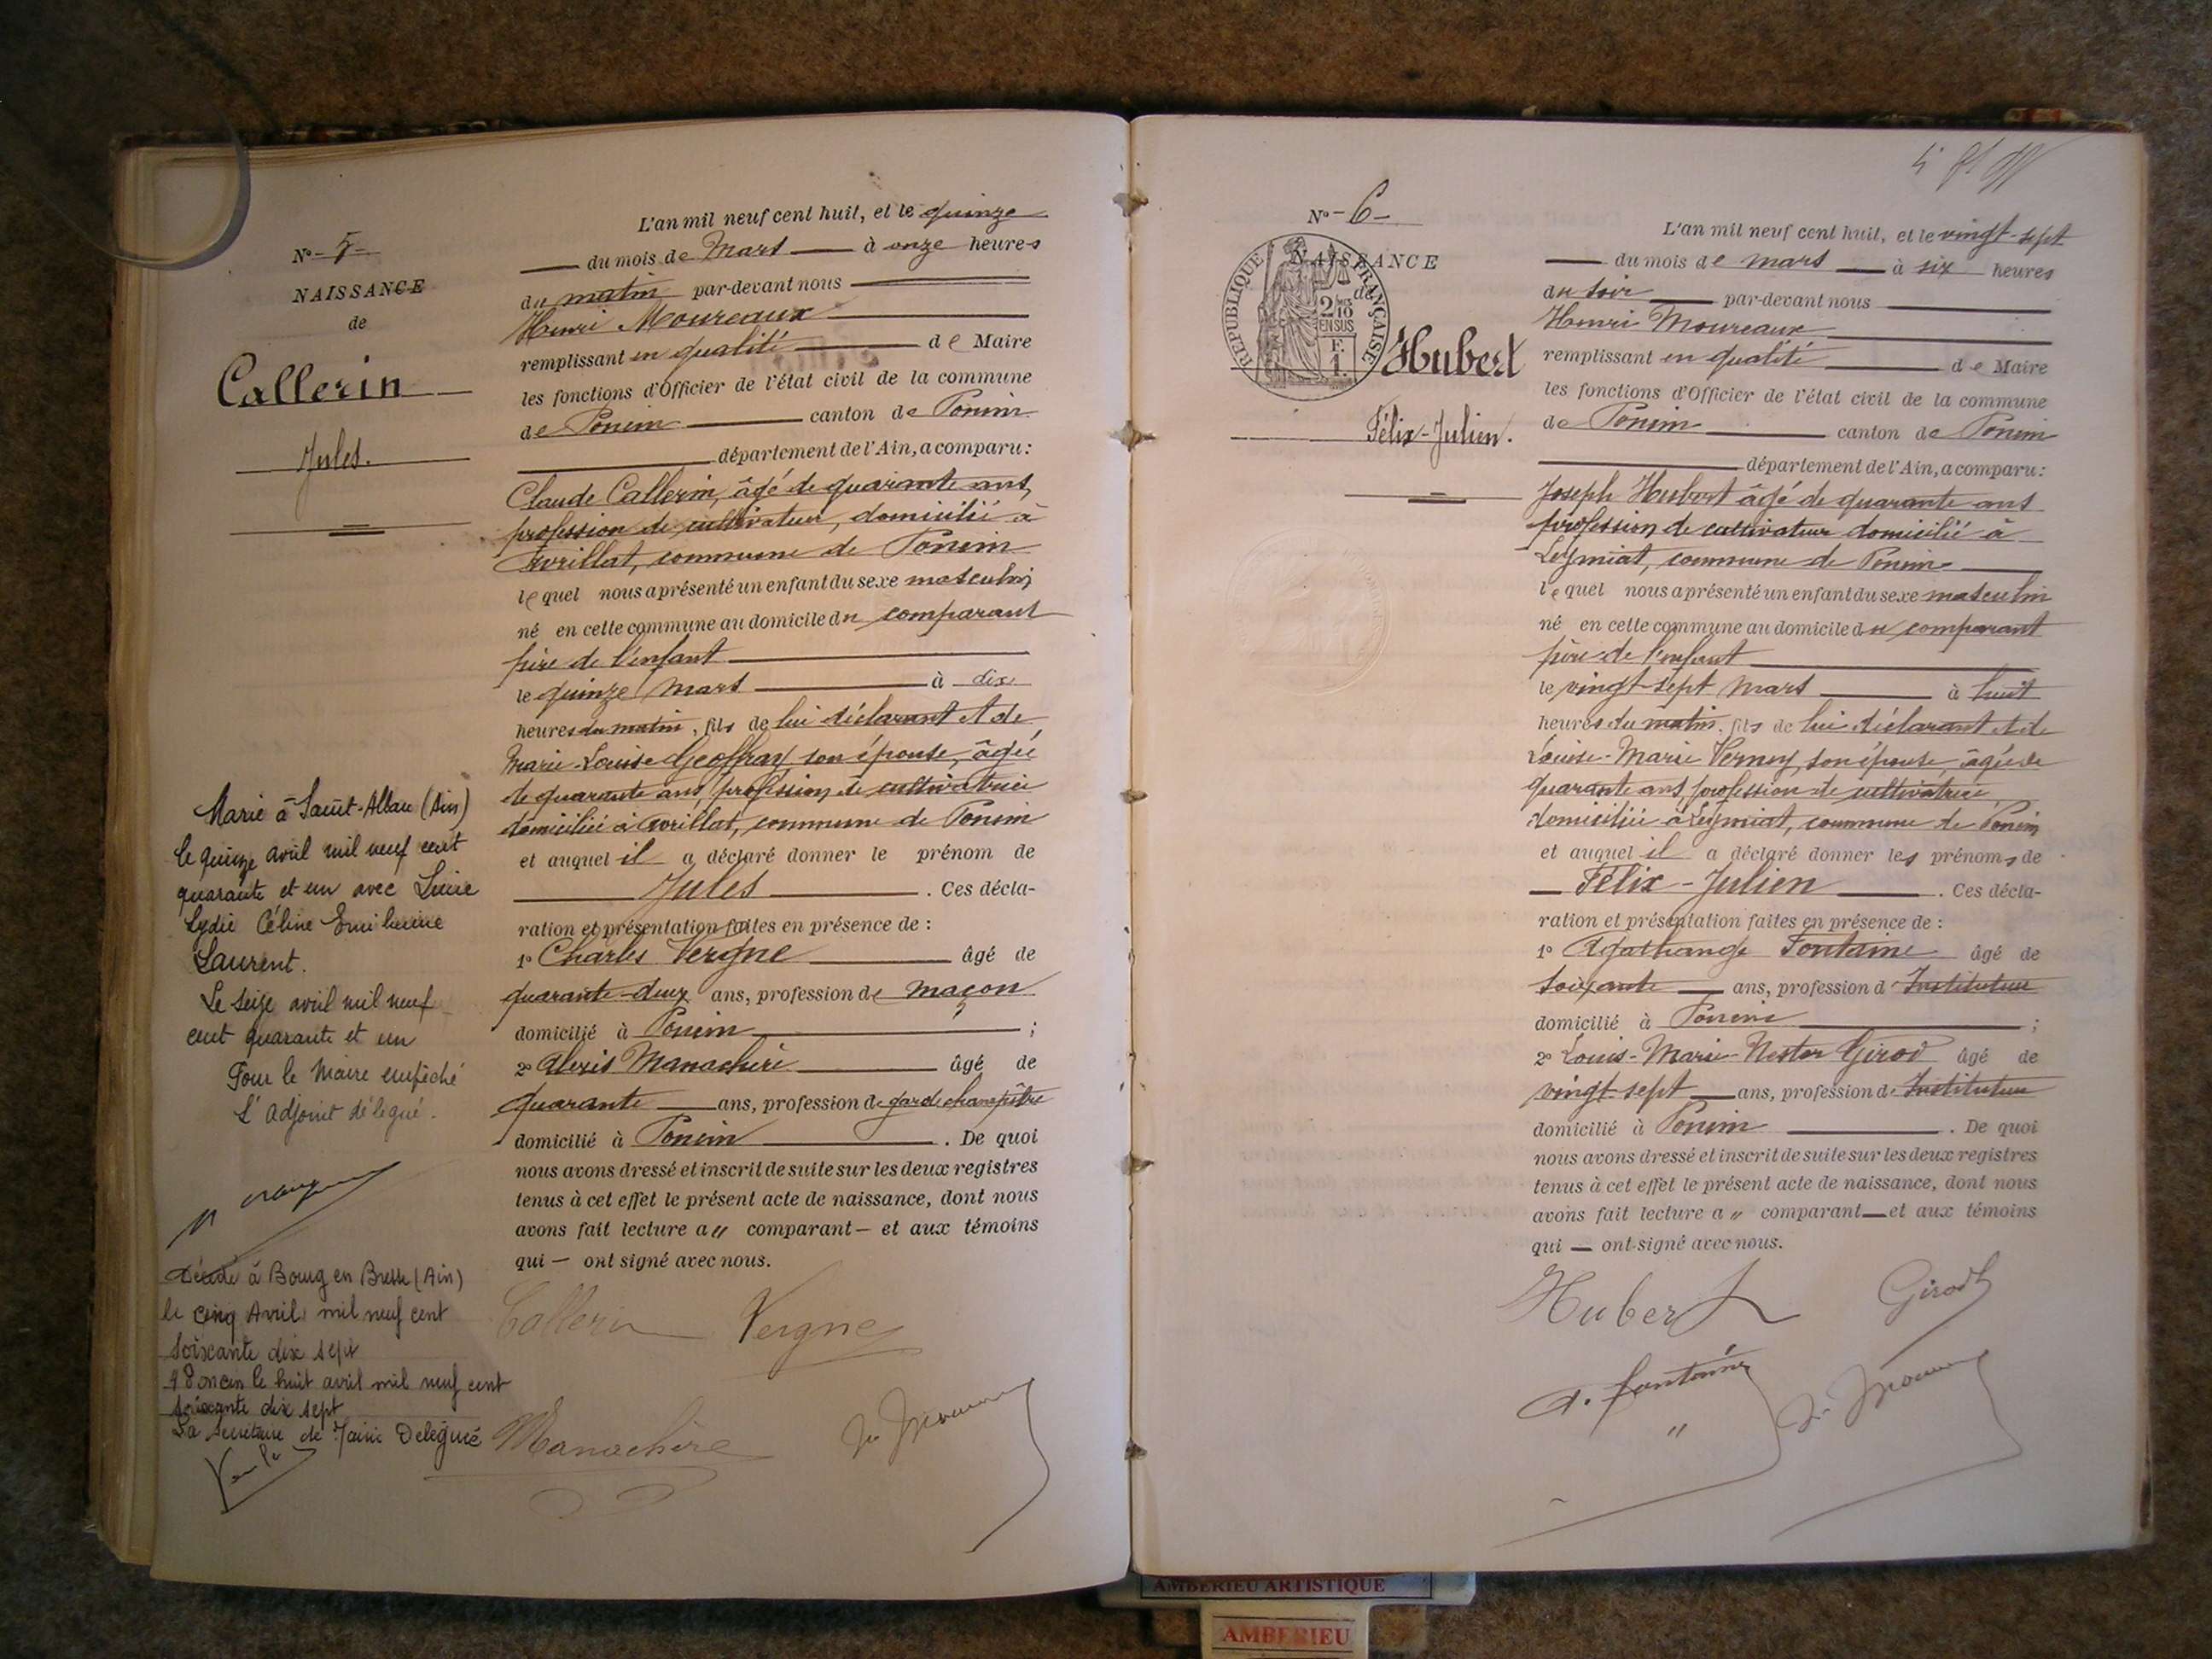 N° - 5 -
NAISSANCE
de
Callerin
Jules.
L'an mil neuf cent huit, et le quinze
du mois de Mars à onze heures
du matin par-devant nous
Henri Moureaux
remplissant en qualité de Maire
les fonctions d'Officier de l'état civil de la commune
de Poncin canton de Poncin
département de l'Ain, a comparu:
Claude Callerin, âgé de quarante ans,
profession de cultivateur, domicilié à
Avrillat, commune de Poncin
lequel nous a présenté un enfant du sexe masculin
né en cette commune au domicile du comparant
père de l'enfant
le quinze Mars à dix
heures du matin, fils de lui déclarant et de
Marie-Louise Geoffray son épouse, âgée
de quarante ans, profession de cultivatrice
domiciliée à Avrillat, commune de Poncin
et auquel il a déclaré donner le prénom de
Jules. Ces décla-
ration et présentation faites en présence de :
1° Charles Vergne âgé de
quarante-deux ans, profession de maçon
domicilié à Poncin ;
2° Alexis Manachère âgé de
quarante ans, profession de garde champêtre
domicilié à Poncin. De quoi
nous avons dressé et inscrit de suite sur les deux registres
tenus à cet effet le présent acte de naissance, dont nous
avons fait lecture a〃 comparant — et aux témoins
qui — ont signé avec nous.
Callerin Vergne
Manachère
Marié à Saint-Alban (Ain)
le quinze avril mil neuf cent
quarante et un avec Lucie
Lydie Céline
Laurent.
Le seize avril mil neuf
cent quarante et un
Pour le Maire empêché
L'adjoint délégué.
Décédé à Bourg en Bresse (Ain)
le cinq Avril mil neuf cent
soixante dix sept
Poncin le huit avril mil neuf cent
soixante dix sept
La secrétaire de Mairie Deleguée
N° - 6 -
NAISSANCE
de
RÉPUBLIQUE FRANÇAISE
2/10
EN SUS
F.
1.
Hubert
Félix-Julien.
L'an mil neuf cent huit, et le vingt-sept
du mois de mars à six heures
du soir par-devant nous
Henri Moureaux
remplissant en qualité de Maire
les fonctions d'Officier de l'état civil de la commune
de Poncin canton de Poncin
département de l'Ain, a comparu:
Joseph Hubert âgé de quarante ans
profession de cultivateur domicilié à
Leymiat, commune de Poncin
lequel nous a présenté un enfant du sexe masculin
né en cette commune au domicile du comparant
père de l'enfant
le vingt-sept Mars à huit
heures du matin, fils de lui déclarant et de
Louise-Marie son épouse âgée de
quarante ans, profession de cultivatrice
domiciliée à Leymiat, commune de Poncin
et auquel il a déclaré donner les prénoms de
Félix-Julien. Ces décla-
ration et présentation faites en présence de :
1° Agathange Fontaine âgé de
soixante ans, profession d'Instituteur
domicilié à Poncin ;
2° Louis-Marie-Nestor Girod âgé de
vingt-sept ans, profession d'Instituteur
domicilié à Poncin. De quoi
nous avons dressé et inscrit de suite sur les deux registres
tenus à cet effet le présent acte de naissance, dont nous
avons fait lecture a〃 comparant — et aux témoins
qui — ont signé avec nous.
Hubert Girod
A. Fontaine
AMBERIEU ARTISTIQUE
AMBERIEU